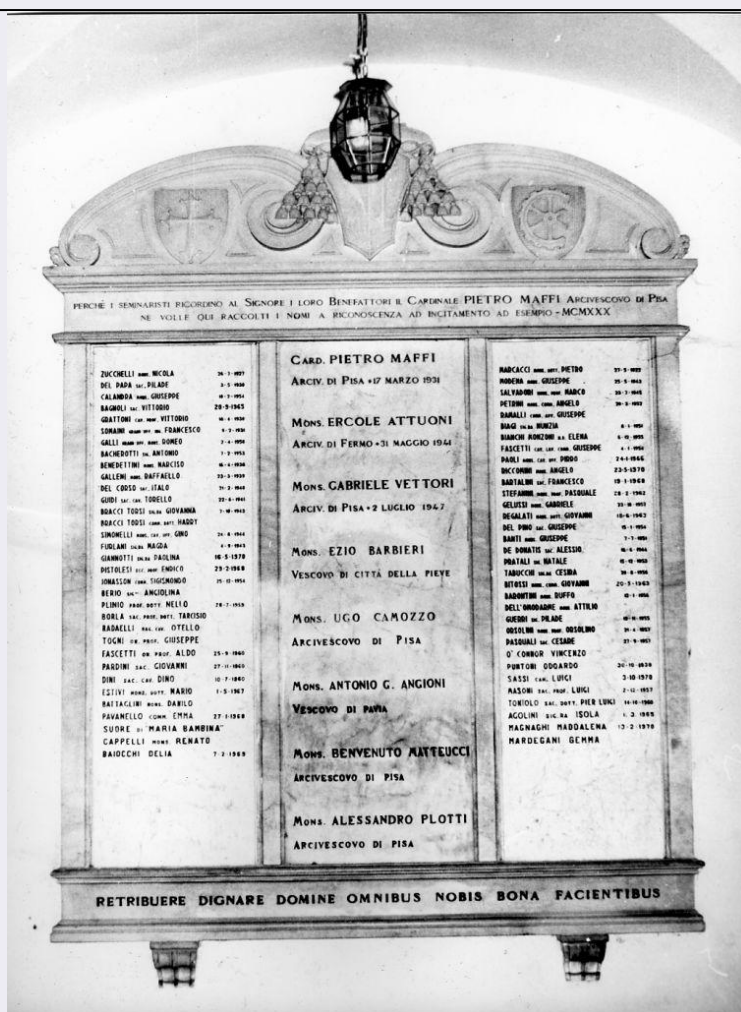 PERCHÈ I SEMINARISTI RICORDINO AL SIGNORE I LORO BENEFATTORI IL CARDINALE PIETRO MAFFI ARCIVESCOVO DI PISA
NE VOLLE QUI RACCOLTI I NOMI A RICONOSCENZA AD INCITAMENTO AD ESEMPIO - MCMXXX
ZUCCHELLI NICOLA
DEL PAPA SAC. PILADE
CALANDRA GIUSEPPE
BAGNOLI SAC. VITTORIO 28-9-1965
GRATTONI VITTORIO
SOMAINI FRANCESCO
GALLI ROMEO
BACHEROTTI ANTONIO
BENEDETTINI NARCISO
GALLENI RAFFAELLO
DEL CORSO SAC. ITALO
GUIDI SAC. CAV. TORELLO
BRACCI TORSI GIOVANNA
BRACCI TORSI HARRY
SIMONELLI GINO
FURLANI MAGDA
GIANNOTTI PAOLINA 16-5-1970
PISTOLESI ENRICO 29-2-1968
JONASSON SIGISMONDO
BERIO ANGIOLINA
PLINIO PROF. DOTT. NELLO 28-7-1959
BORLA SAC. PROF. DOTT. TARCISIO
RADAELLI OTELLO
TOGNI PROF. GIUSEPPE
FASCETTI PROF. ALDO 25-9-1960
PARDINI SAC. GIOVANNI 27-11-1960
DINI SAC. CAV. DINO 10-7-1960
ESTIVI MONS. DOTT. MARIO 1-5-1967
BATTAGLINI MONS. DANILO
PAVANELLO COMM. EMMA 27-1-1968
SUORE DI "MARIA BAMBINA"
CAPPELLI MONS. RENATO
BAIOCCHI DELIA 7-2-1969
CARD. PIETRO MAFFI
ARCIV. DI PISA + 17 MARZO 1931
MONS. ERCOLE ATTUONI
ARCIV. DI FERMO + 31 MAGGIO 1941
MONS. GABRIELE VETTORI
ARCIV. DI PISA + 2 LUGLIO 1947
MONS. EZIO BARBIERI
VESCOVO DI CITTÀ DELLA PIEVE
MONS. UGO CAMOZZO
ARCIVESCOVO DI PISA
MONS. ANTONIO G. ANGIONI
VESCOVO DI PAVIA
MONS. BENVENUTO MATTEUCCI
ARCIVESCOVO DI PISA
MONS. ALESSANDRO PLOTTI
ARCIVESCOVO DI PISA
MARCACCI PIETRO
MODENA GIUSEPPE
SALVADORI MARCO
PETRINI ANGELO
RAMALLI GIUSEPPE
BIAGI NUNZIA
BIANCHI MONZONI ELENA
FASCETTI GIUSEPPE
PAOLI PIRRO 24-1-1966
RICCOMINI ANGELO 23-5-1970
BARTALINI SAC. FRANCESCO 19-1-1968
STEFANINI PASQUALE
GELUSSI GABRIELE
DEGALATI GIOVANNI
DEL PINO SAC. GIUSEPPE
BANTI GIUSEPPE
DE DONATIS SAC. ALESSIO
PRATALI NATALE
TABUCCHI CESIRA
BITOSSI GIOVANNI
BARONTINI RUFFO
DELL'OMODARME ATTILIO
GUERRI PILADE
ORSOLINI ORSOLINO
PASQUALI SAC. CESARE
O' CONNOR VINCENZO
PUNTONI ODOARDO 30-10-1938
SASSI CAN. LUIGI 3-10-1970
MASONI SAC. PROF. LUIGI 2-12-1957
TONIOLO SAC. DOTT. PIER LUIGI
AGOLINI SIG.RA ISOLA 1. 3. 1965
MAGNAGHI MADDALENA 13-2-1970
MARDEGANI GEMMA
RETRIBUERE DIGNARE DOMINE OMNIBUS NOBIS BONA FACIENTIBUS